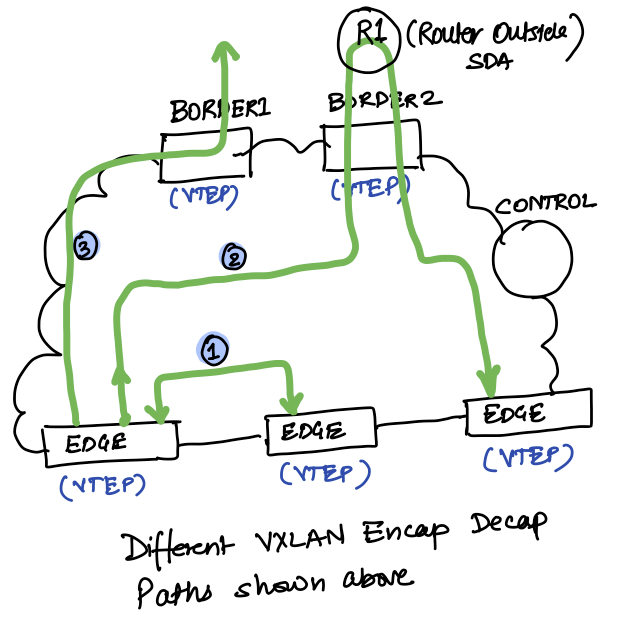 R1 (Router Outside)
SDA
BORDER1
BORDER2
(VTEP)
(VTEP)
CONTROL
3
2
1
EDGE
EDGE
EDGE
(VTEP)
(VTEP)
(VTEP)
Different VXLAN Encap Decap
Paths shown above